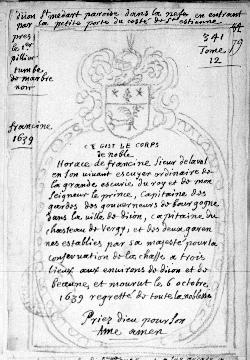 dijon St médart paroisse dans la nefe en entrant
par la petite porte du costé de St estienne
pres
le 1er
pillier
tumbe
de marbre
noir
341
Tome
12
79
francine
1639
CE GIST LE CORPS
de noble
Horace de francine sieur de laval
en son vivant escuyer ordinaire de
la grande escurie du roy et de mon
seigneur le prince, capitaine des
gardes des gouverneurs de bourgogne
dans la ville de dijon, capitaine du
chasteau de vergy, et des deux garen
nes establies par sa majesté pour la
conservation de la chasse a trois
lieux aux environs de dijon et de
beaune, et mourut le 6 octobre,
1639 regretté de toute la noblesse
Priez dieu pour son
Ame amen